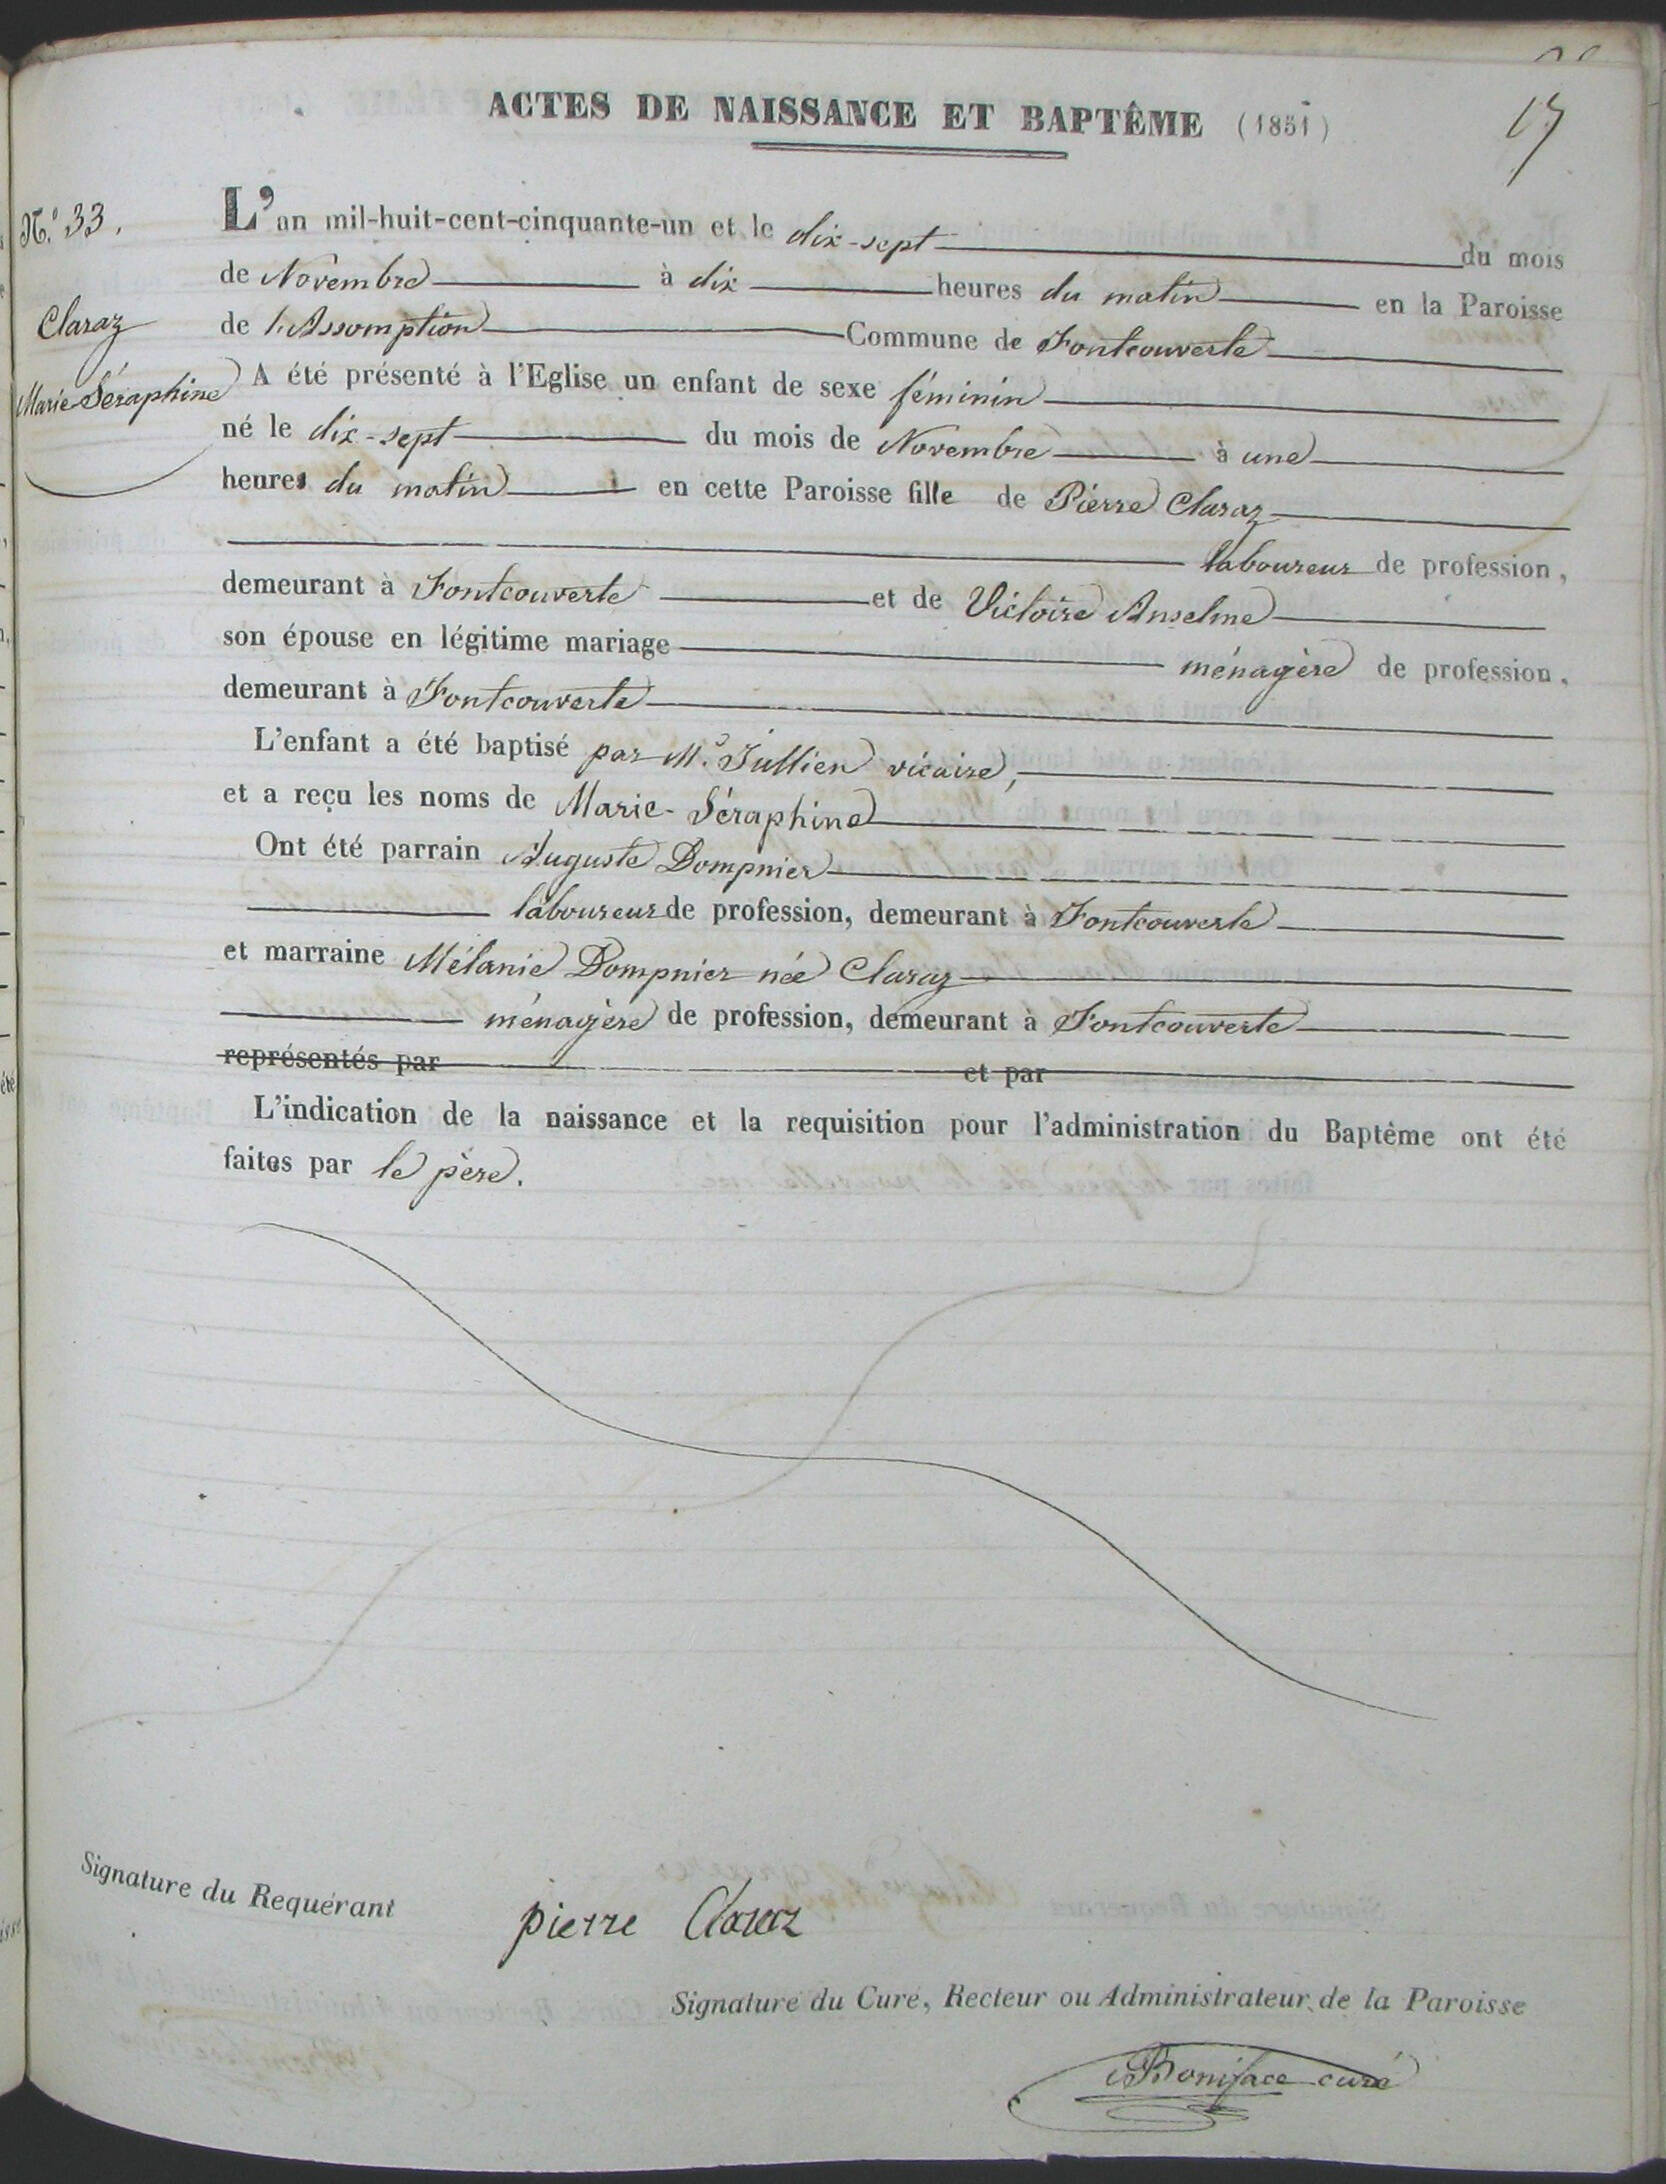 ACTES DE NAISSANCE ET BAPTÊME (1851)
17
N.° 33.
Claraz
Marie-Séraphine
L'an mil-huit-cent-cinquante-un et le dix-sept du mois
de Novembre à dix heures du matin en la Paroisse
de l'Assomption Commune de Fontcouverte
A été présenté à l'Eglise un enfant de sexe féminin
né le dix-sept du mois de Novembre à une
heures du matin en cette Paroisse fille de Pierre Claraz
laboureur de profession,
demeurant à Fontcouverte et de Victoire Anselme
son épouse en légitime mariage ménagère de profession,
demeurant à Fontcouverte
L'enfant a été baptisé par M.r Jullien vicaire,
et a reçu les noms de Marie-Séraphine
Ont été parrain Auguste Dompnier
laboureur de profession, demeurant à Fontcouverte
et marraine Mélanie Dompnier née Claraz
ménagère de profession, demeurant à Fontcouverte
représentés par et par
L'indication de la naissance et la requisition pour l'administration du Baptême ont été
faites par le père.
Signature du Requérant
pierre Claraz
Signature du Curé, Recteur ou Administrateur de la Paroisse
Boniface curé